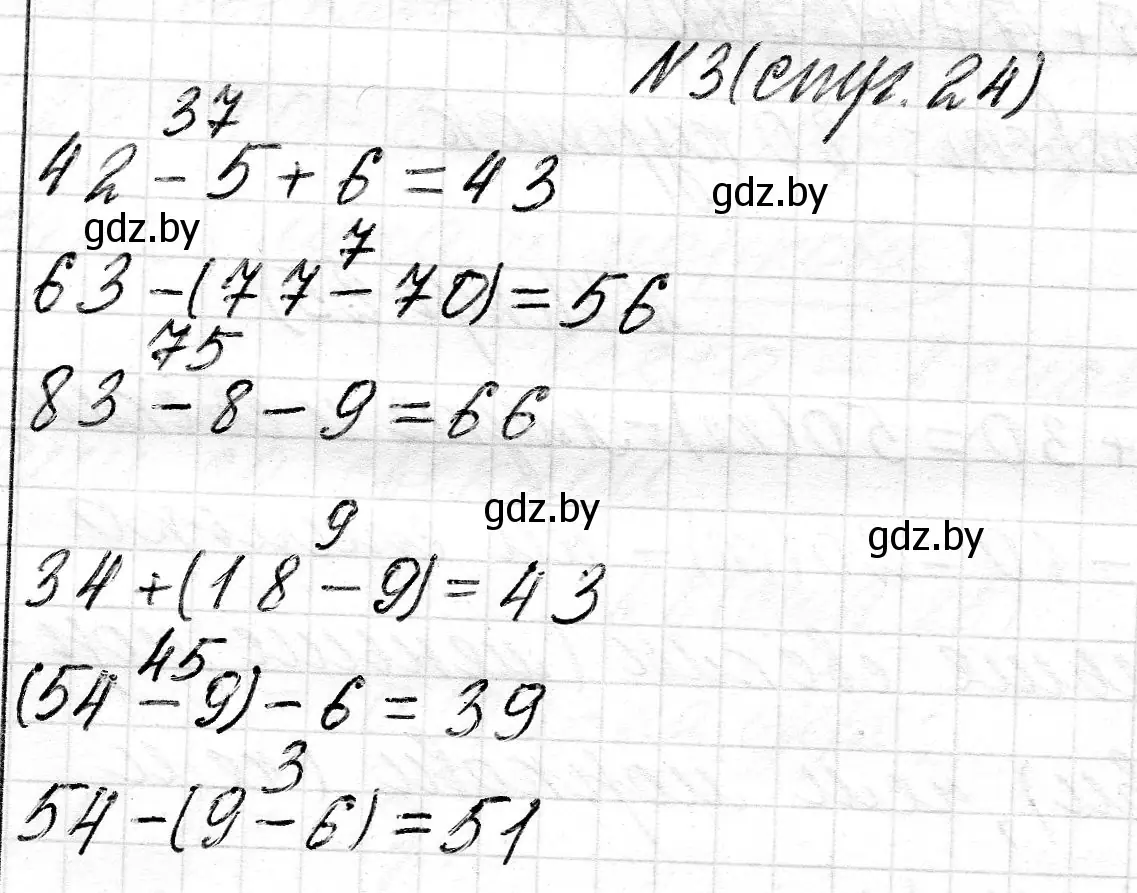 N3(стр. 24)
37
42 - 5 + 6 = 43
gdz.by
gdz.by
7
63 - (77 - 70) = 56
75
83 - 8 - 9 = 66
gdz.by
gdz.by
9
34 + (18 - 9) = 43
45
(54 - 9) - 6 = 39
3
54 - (9 - 6) = 51